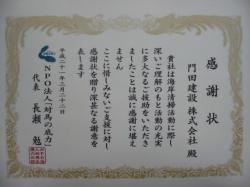 感謝状
門田建設 株式会社 殿
貴社は海岸清掃活動に際し
深いご理解のもと活動の充実
に多大なるご援助をいただき
ましたことは誠に感謝に堪え
ません
ここに惜しみないご支援に対し
感謝状を贈り深甚なる謝意を
表します
平成二十一年三月二十二日
NPO法人「対馬の底力」
代表 長瀬 勉